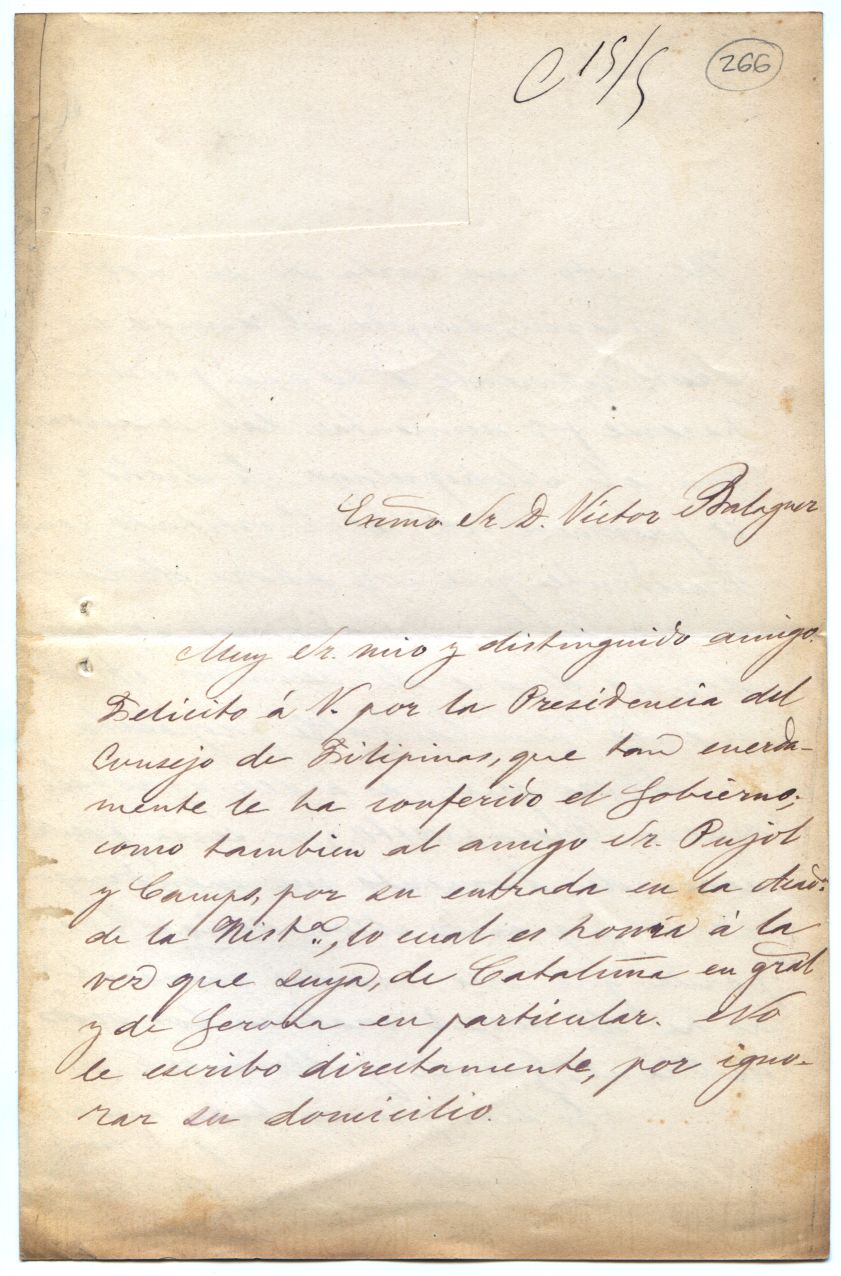 C 15/5
266
Exmo. Sr. D. Victor Balaguer
Muy Sr. mio y distinguido amigo.
Felicito á V. por la Presidencia del
Consejo de Filipinas, que tan cuerda-
mente le ha conferido el Gobierno;
como tambien al amigo Sr. Pujol
y Camps, por su entrada en la Acad.ª
de la Hist.ª, lo cual es honra á la
vez que suya, de Cataluña en gral
y de Gerona en particular. No
le escribo directamente, por igno-
rar su domicilio.